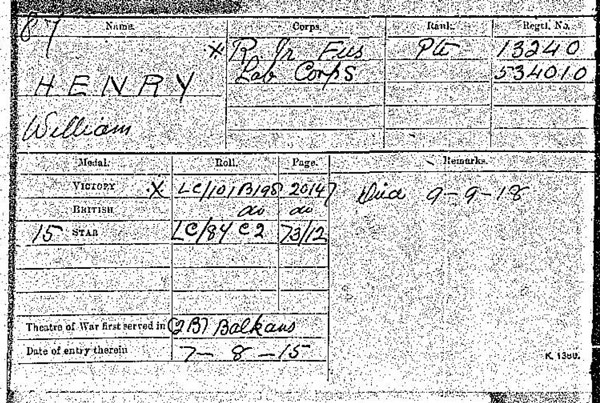 87
Name. Corps. Rank. Regtl. No.
X R Ir Fus Pte 13240
HENRY Lab Corps 534010
William
Medal. Roll. Page. Remarks.
VICTORY X LC/101B198 20147 Died 9-9-18
BRITISH do do
15 STAR LC/84 C2 73/12
Theatre of War first served in (2B) Balkans
Date of entry therein 7-8-15
K. 1380.